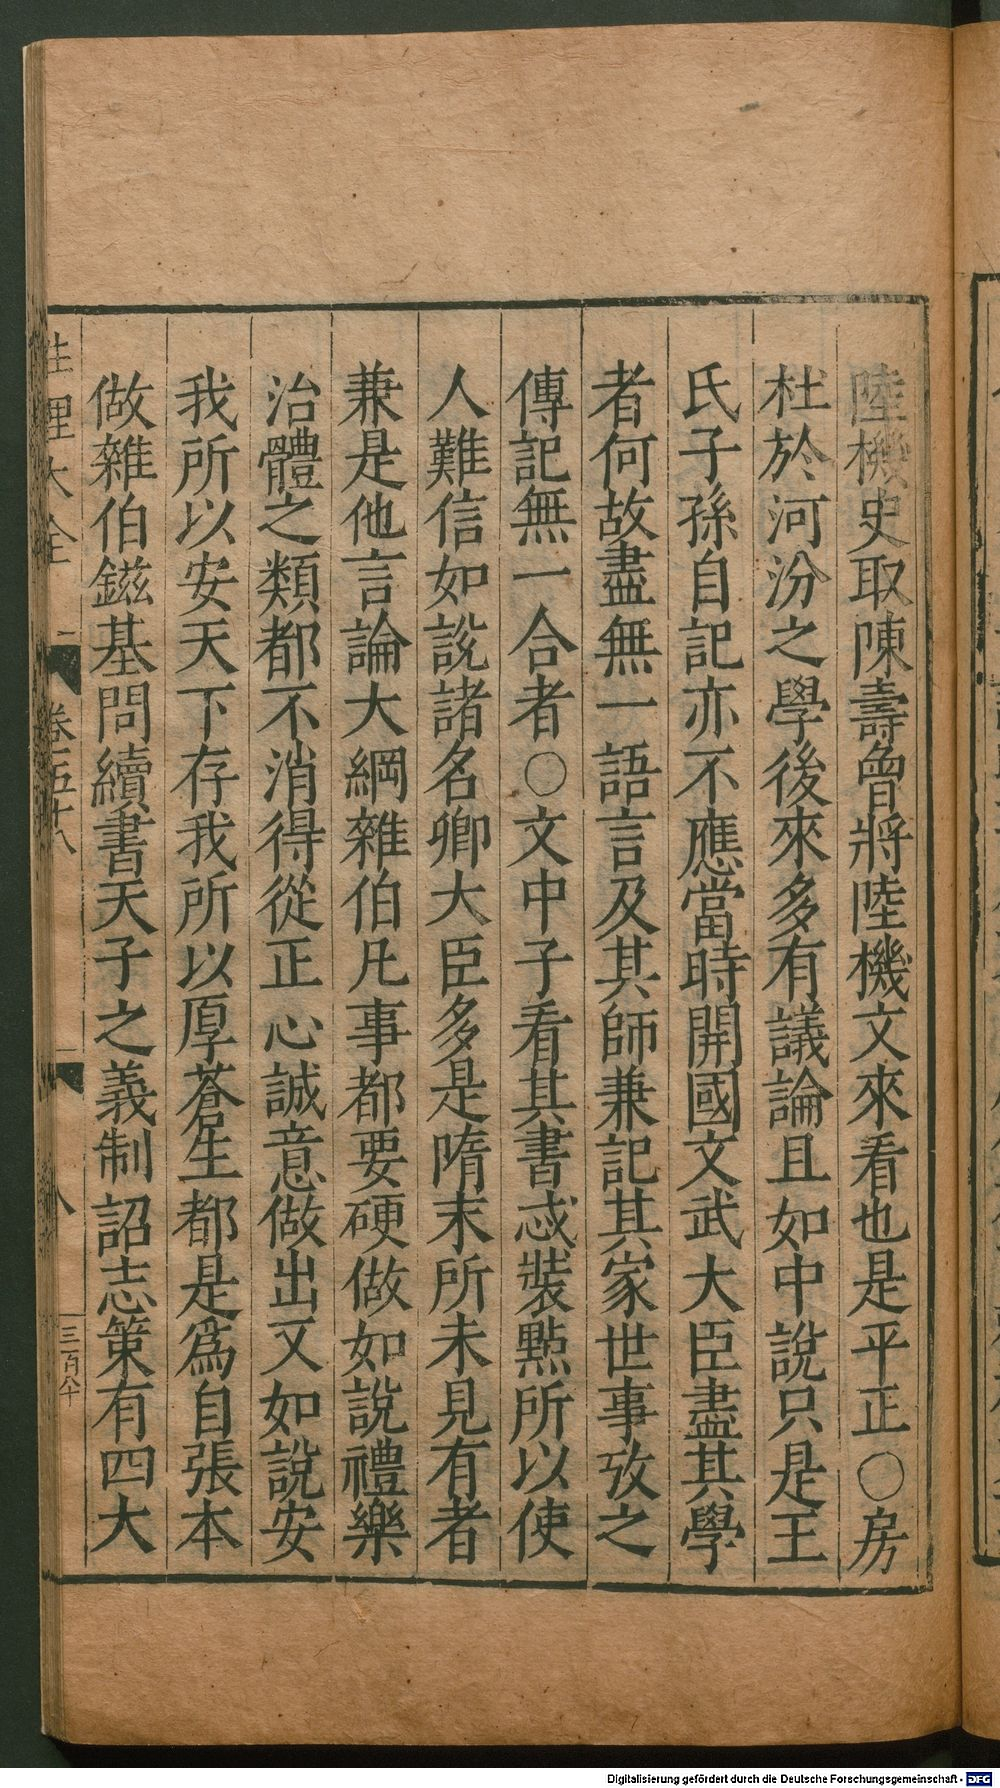 陸機史取陳壽曾將陸機文來看也是平正○房
杜於河汾之學後來多有議論且如中說只是王
氏子孫自記亦不應當時開國文武大臣盡其學
者何故盡無一語言及其師兼記其家世事攷之
傳記無一合者○文中子看其書忒裝點所以使
人難信如說諸名卿大臣多是隋末所未見有者
兼是他言論大綱雜伯凡事都要硬做如說禮樂
治體之類都不消得從正心誠意做出又如說安
我所以安天下存我所以厚蒼生都是爲自張本
做雜伯鎡基問續書天子之義制詔志策有四大
性理大全
卷五十八
八
三百八十
Digitalisierung gefördert durch die Deutsche Forschungsgemeinschaft - DFG